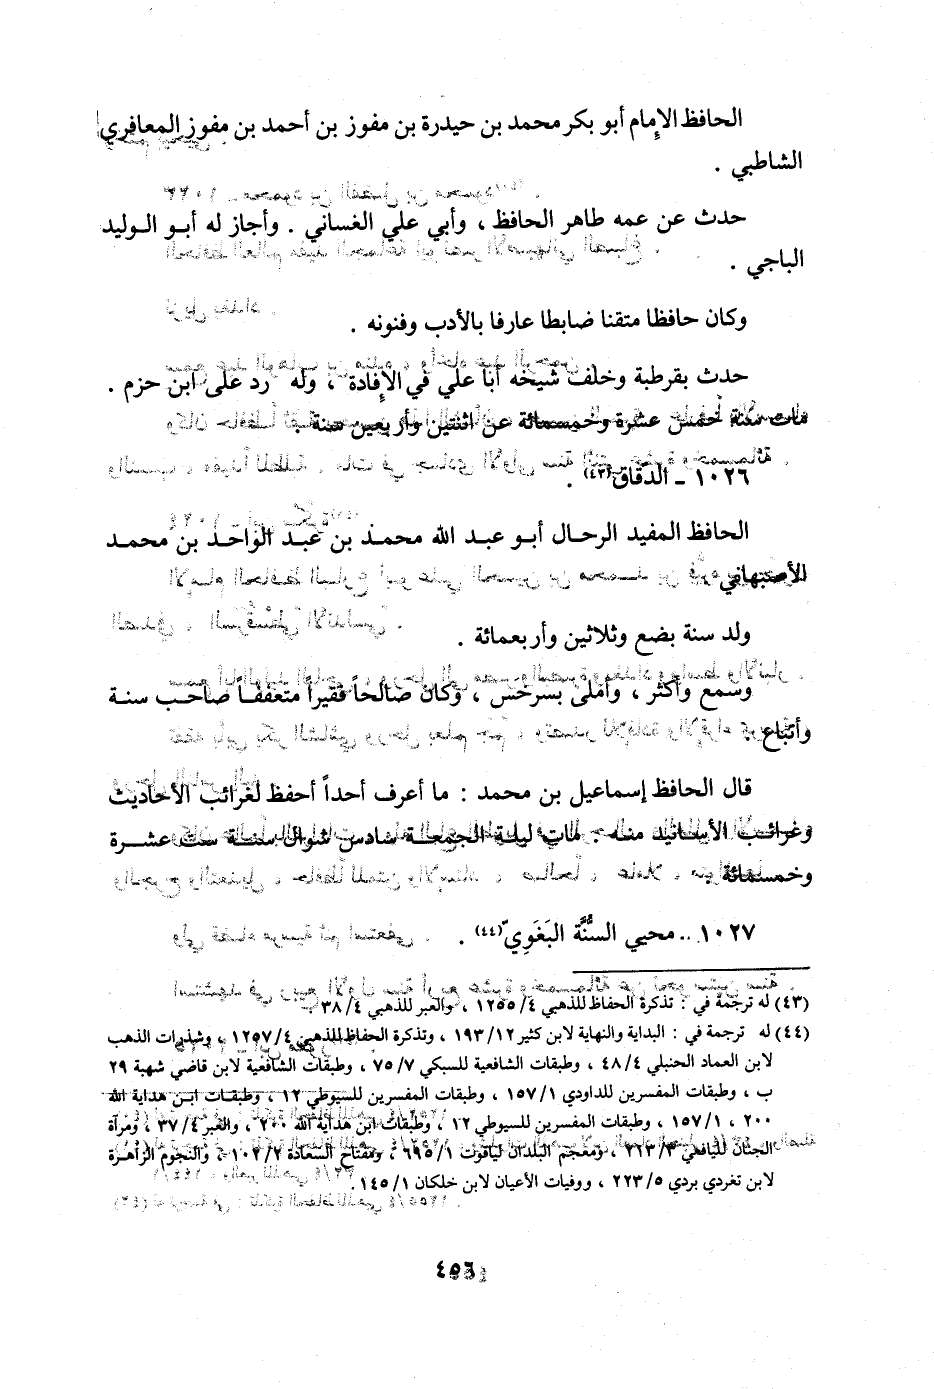 الحافظ الإمام أبو بكر محمد بن حيدرة بن مفوز بن أحمد بن مفوز المعافري
الشاطبي .
حدث عن عمه طاهر الحافظ ، وأبي علي الغساني . وأجاز له أبـو الـوليد
الباجي .
وكان حافظا متقنا ضابطا عارفا بالأدب وفنونه .
حدث بقرطبة وخلف شيخه أبا علي في الإفادة ، وله رد على ابن حزم .
مات سنة خمس عشرة وخمسمائة عن اثنتين وأربعين سنة .
١٠٢٦ ـ الدقاق(٤٣) .
الحافظ المفيد الرحال أبـو عبـد الله محمـد بن عبـد الواحـد بن محمـد
الأصبهاني
ولد سنة بضع وثلاثين وأربعمائة .
وسمع وأكثر ، وأملى بسرخس ، وكان صالحاً فقيراً متعففـاً صاحـب سنـة
وأتباع
قال الحافظ إسماعيل بن محمد : ما أعرف أحداً أحفظ لغرائب الأحاديث
وغرائـب الأسانيد منـه . مات ليلـة الجمعـة سادس شوال سنـة ست عشـرة
وخمسمائة .
١٠٢٧ .. محيي السُّنَّة البَغَوِيّ(٤٤) .
(٤٣) له ترجمة في : تذكرة الحفاظ للذهبي ٤/ ١٢٥٥ ، والعبر للذهبي ٤/ ٣٨ .
(٤٤) له ترجمة في : البداية والنهاية لابن كثير ١٢/ ١٩٣ ، وتذكرة الحفاظ للذهبي ٤/ ١٢٥٧ ، وشذرات الذهب
لابن العماد الحنبلي ٤/ ٤٨ ، وطبقات الشافعية للسبكي ٧/ ٧٥ ، وطبقات الشافعية لابن قاضي شهبة ٢٩
ب ، وطبقات المفسرين للداودي ١/ ١٥٧ ، وطبقات المفسرين للسيوطي ١٢ ، وطبقـات ابـن هداية الله
٢٠٠ ، ١/ ١٥٧ ، وطبقات المفسرين للسيوطي ١٢ ، وطبقات ابن هداية الله ٢٠٠ ، والعبر ٤/ ٣٧ ، ومرآة
الجنان لليافعي ٣/ ٢١٣ ، ومعجم البلدان لياقوت ١/ ٦٩٥ ، ومفتاح السعادة ٢/ ١٠٢ ، والنجوم الزاهـرة
لابن تغردي بردي ٥/ ٢٢٣ ، ووفيات الأعيان لابن خلكان ١/ ١٤٥ .
٤٥٦